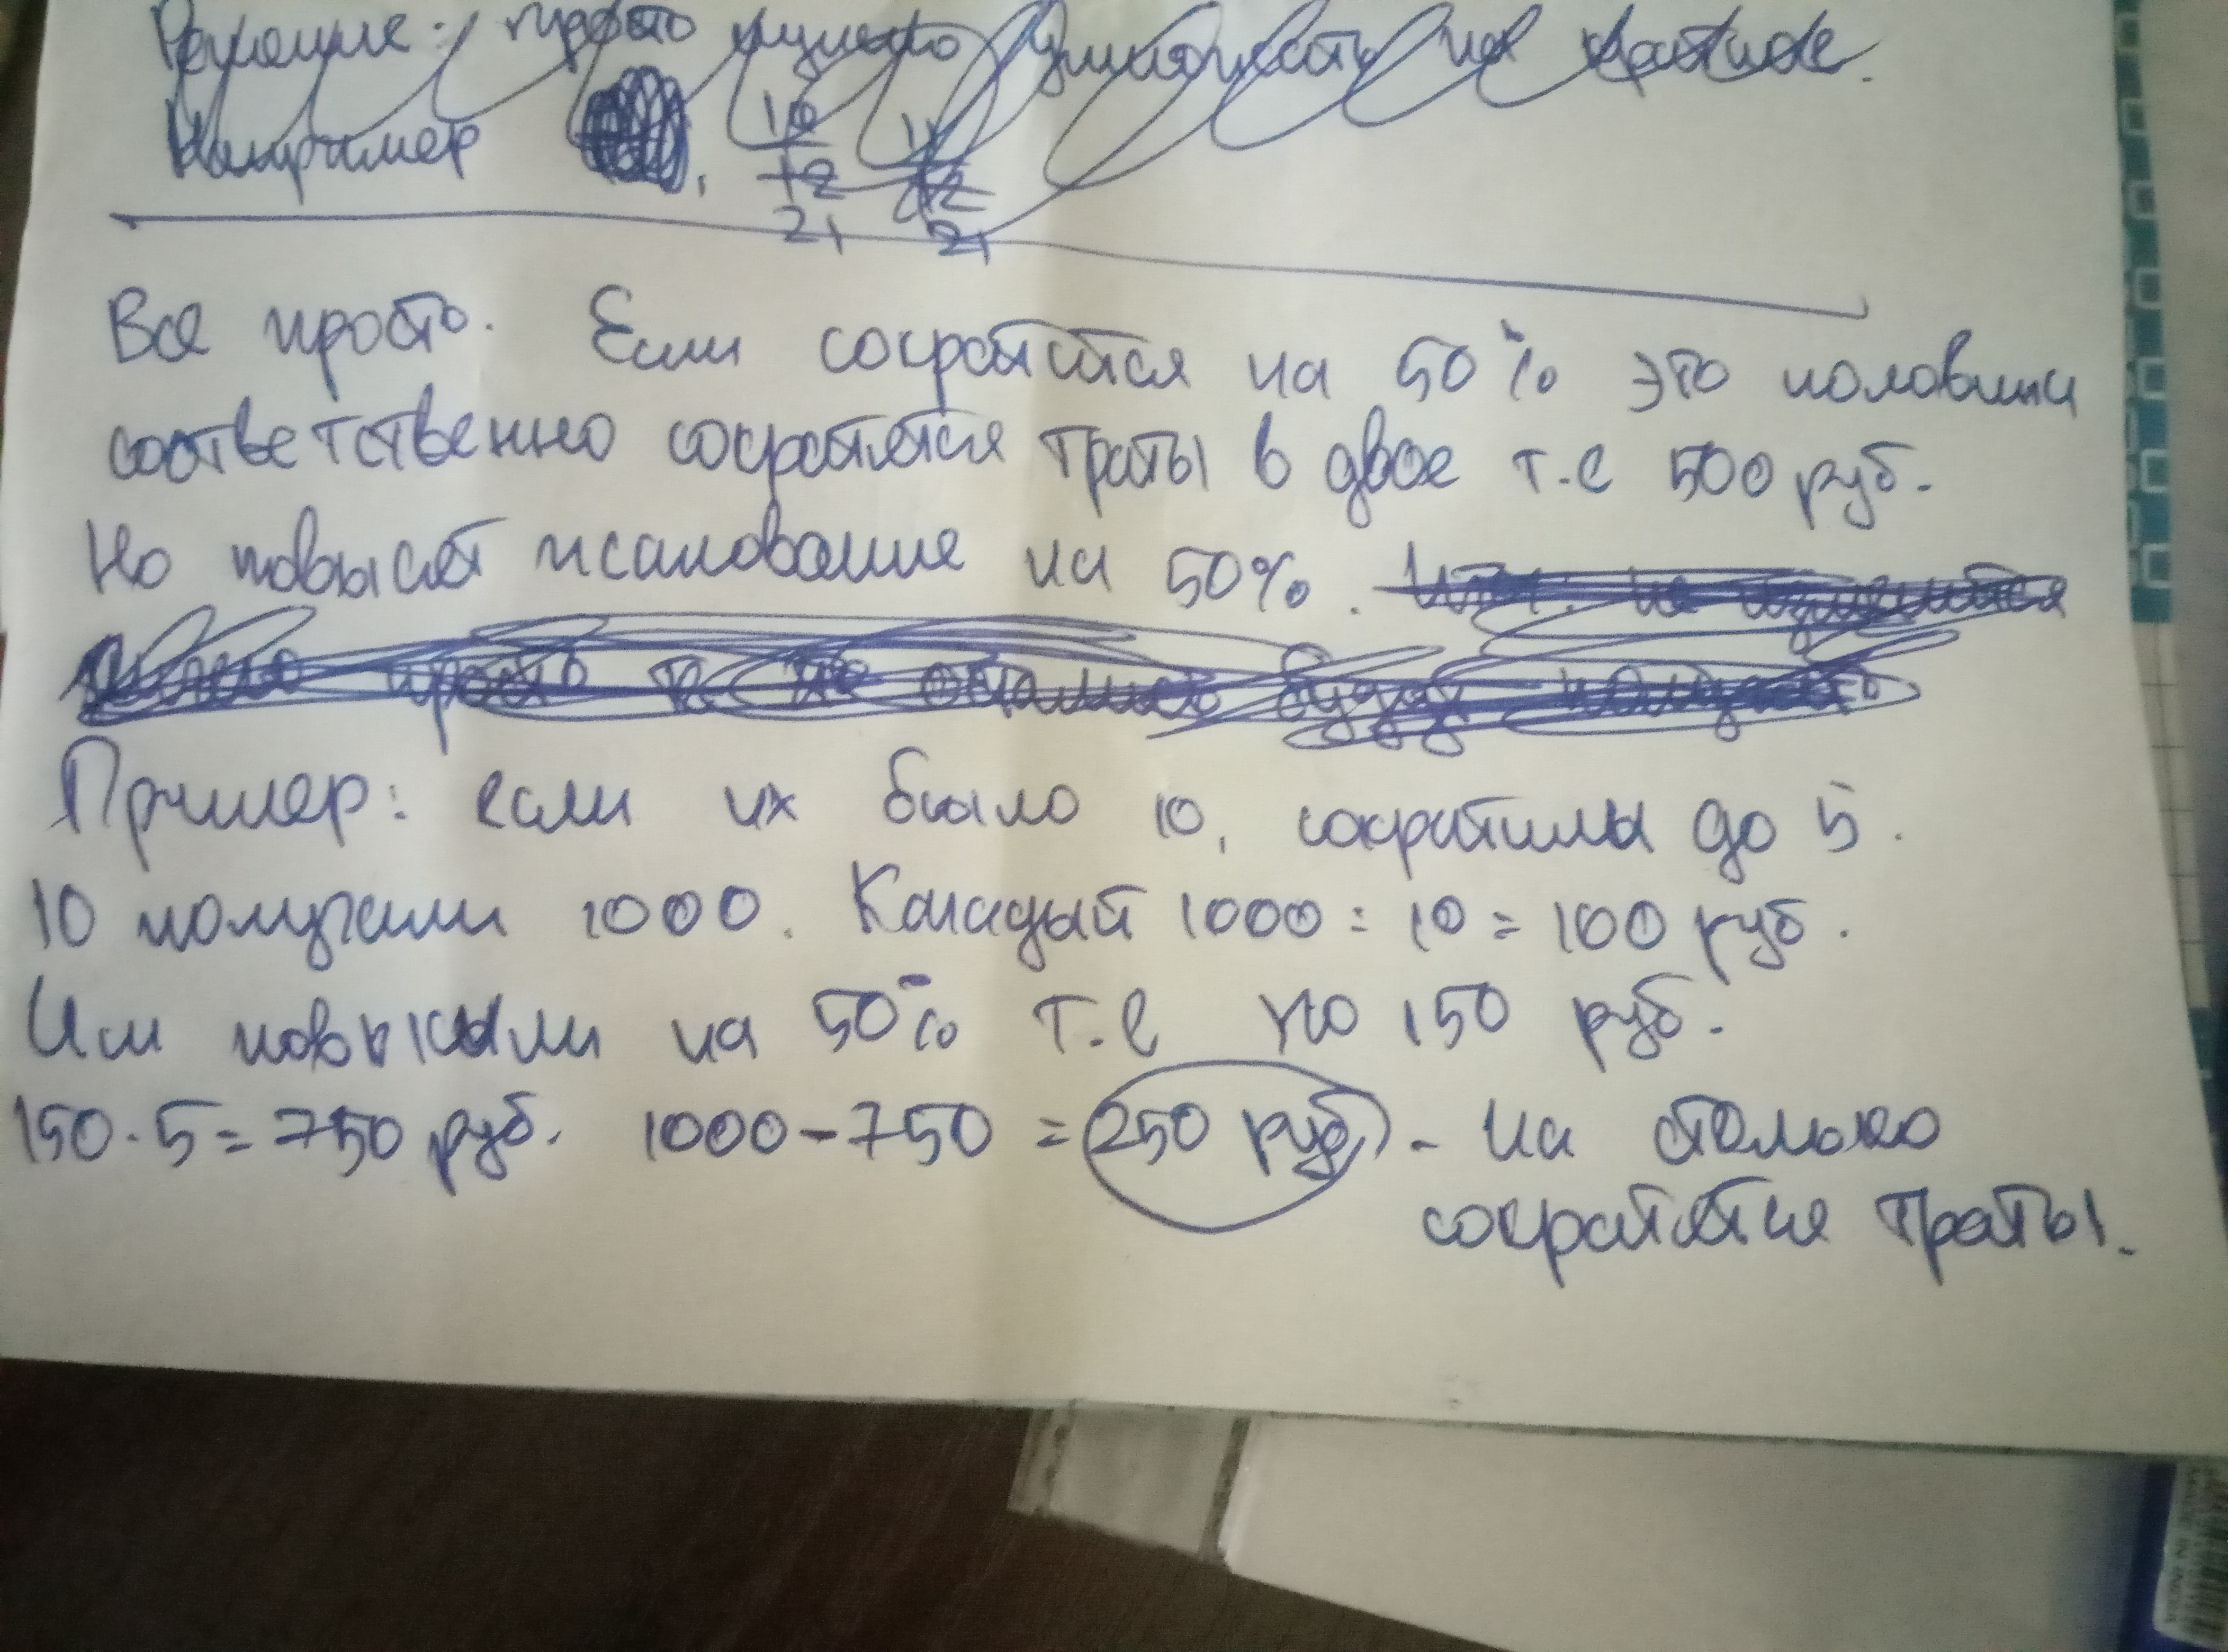 Решение: просто нужно умножить на
Например , 10 11
12 12
21 21
Все просто. Если сократится на 50% это половина
соответственно сократятся траты в двое т.е 500 руб.
Но повысят жалование на 50%. Итог: не изменится
просто те же остались будут получать
Пример: если их было 10, сократилы до 5.
10 получали 1000. Каждый 1000 : 10 = 100 руб.
Им повысили на 50% т.е по 150 руб.
150 · 5 = 750 руб. 1000 - 750 = 250 руб. - на столько
сократятся траты.
MADE IN INDIA